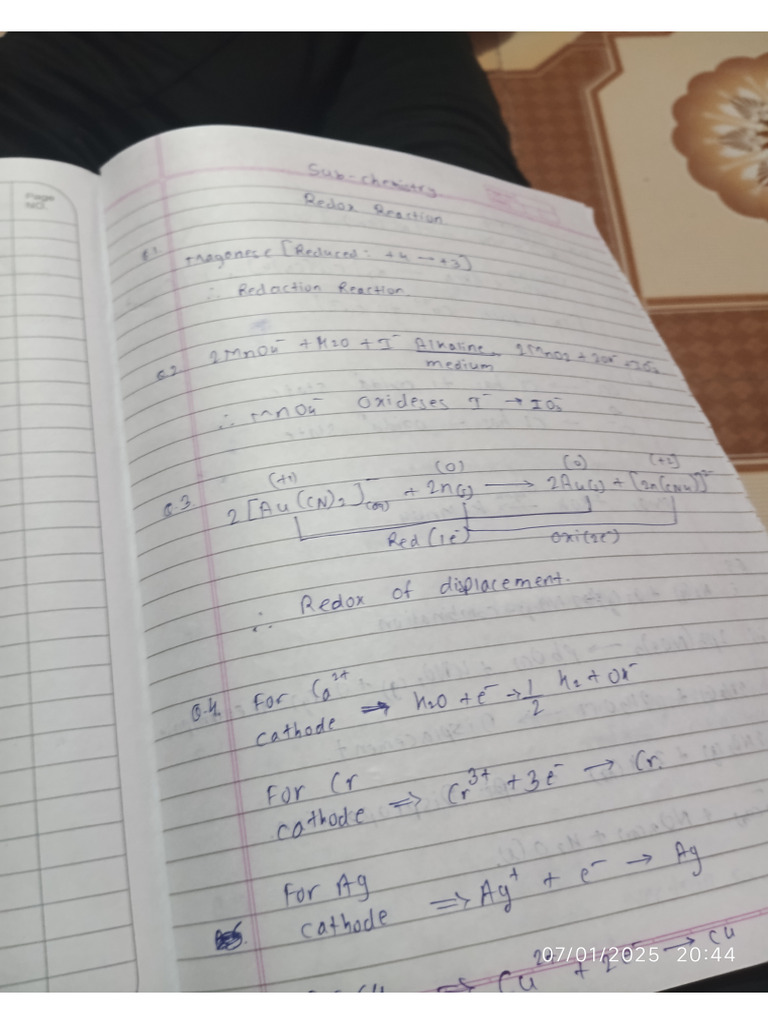 Page
NO.
Sub-chemistry
Redox Reaction
Q.1. Magenese [Reduced: +4 → +3]
∴ Redaction Reaction.
Q.2 2MnO4⁻ + H2O + I⁻ Alkaline medium 2MnO2 + 2OH⁻ + IO3⁻
∴ MnO4⁻ Oxideses I⁻ → IO3⁻
(+1) (0) (0) (+2)
Q.3 2[Au(CN)2]⁻(aq) + Zn(s) → 2Au(s) + [Zn(CN)4]²⁻
Red (1e⁻) Oxi(2e⁻)
∴ Redox of displacement.
Q.4. For Ca²⁺
cathode ⇒ H2O + e⁻ → 1/2 H2 + OH⁻
For Cr
cathode ⇒ Cr³⁺ + 3e⁻ → Cr.
For Ag
cathode ⇒ Ag⁺ + e⁻ → Ag
⇒ Cu²⁺ + 2e⁻ → Cu
07/01/2025 20:44